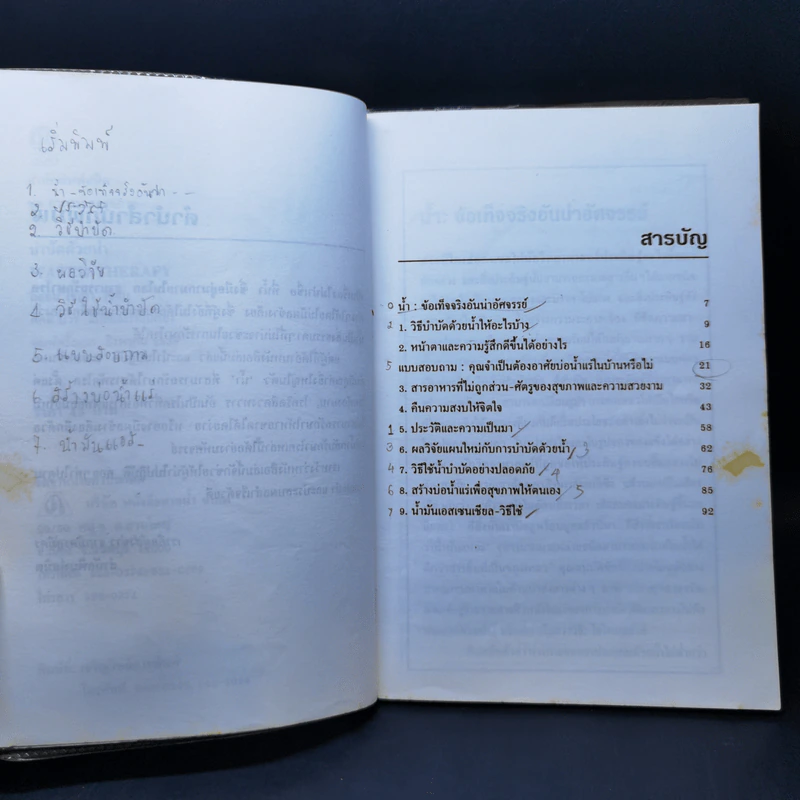 เริ่มพิมพ์
1. น้ำ - ข้อเท็จจริงอันน่า - -
2. ประวัติ
2. วิธีบำบัด
3. ผลวิจัย
4. วิธีใช้น้ำบำบัด
5. แบบสอบถาม
6. สร้างบ่อน้ำแร่
7. น้ำมันเอส-
สารบัญ
0 น้ำ : ข้อเท็จจริงอันน่าอัศจรรย์ / 7
2 1. วิธีบำบัดด้วยน้ำให้อะไรบ้าง / 9
2. หน้าตาและความรู้สึกดีขึ้นได้อย่างไร 16
5 แบบสอบถาม : คุณจำเป็นต้องอาศัยบ่อน้ำแร่ในบ้านหรือไม่ 21
3. สารอาหารที่ไม่ถูกส่วน-ศัตรูของสุขภาพและความสวยงาม 32
4. คืนความสงบให้จิตใจ 43
1 5. ประวัติและความเป็นมา / 58
3 6. ผลวิจัยแผนใหม่กับการบำบัดด้วยน้ำ / 3 62
4 7. วิธีใช้น้ำบำบัดอย่างปลอดภัย / 4 76
6 8. สร้างบ่อน้ำแร่เพื่อสุขภาพให้ตนเอง / 5 85
7 9. น้ำมันเอสเซนเชียล-วิธีใช้ / 92